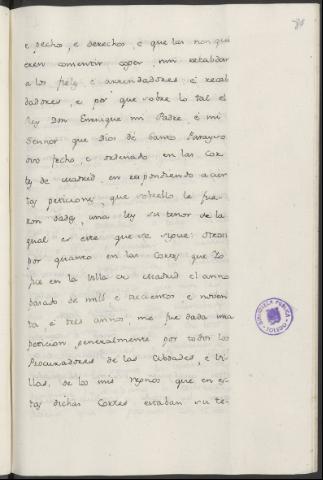 e pecho, e derechos, e que las non qui
eren consentir coger, nin recabdar
a los fieles, e arrendadores, e recab
dadores, e por que sobre lo tal el
Rey Don Enrrique mi Padre, e mi
Sennor que Dios dé Santo Parayso
ovo fecho, e ordenado en las Cor-
tes de Madrid, en respondiendo a cier
tas peticiones, que sobrello le fue-
ron dadas, una ley su tenor de la
qual es este que se sigue: Otrosi
por quanto en las Cortes que Yo
fice en la Villa de Madrid el anno
pasado de mill e trecientos e noven
ta, e tres annos, me fue dada una
peticion generalmente por todos los
Procuradores de las Cibdades, e Vi-
llas, de los mis regnos que en es-
tas dichas Cortes estaban su te-
BIBLIOTECA PUBLICA
TOLEDO